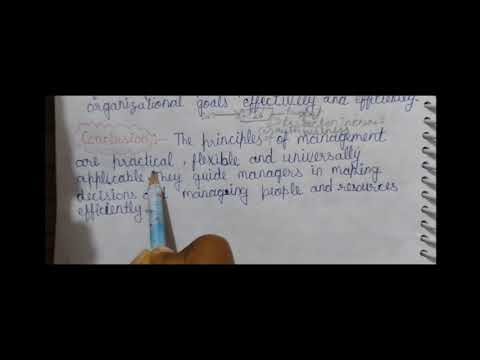 organizational goals effectively and efficiently.
Conclusion :- The principles of management
are practical, flexible and universally
applicable. They guide managers in making
decisions managing people and resources
efficiently